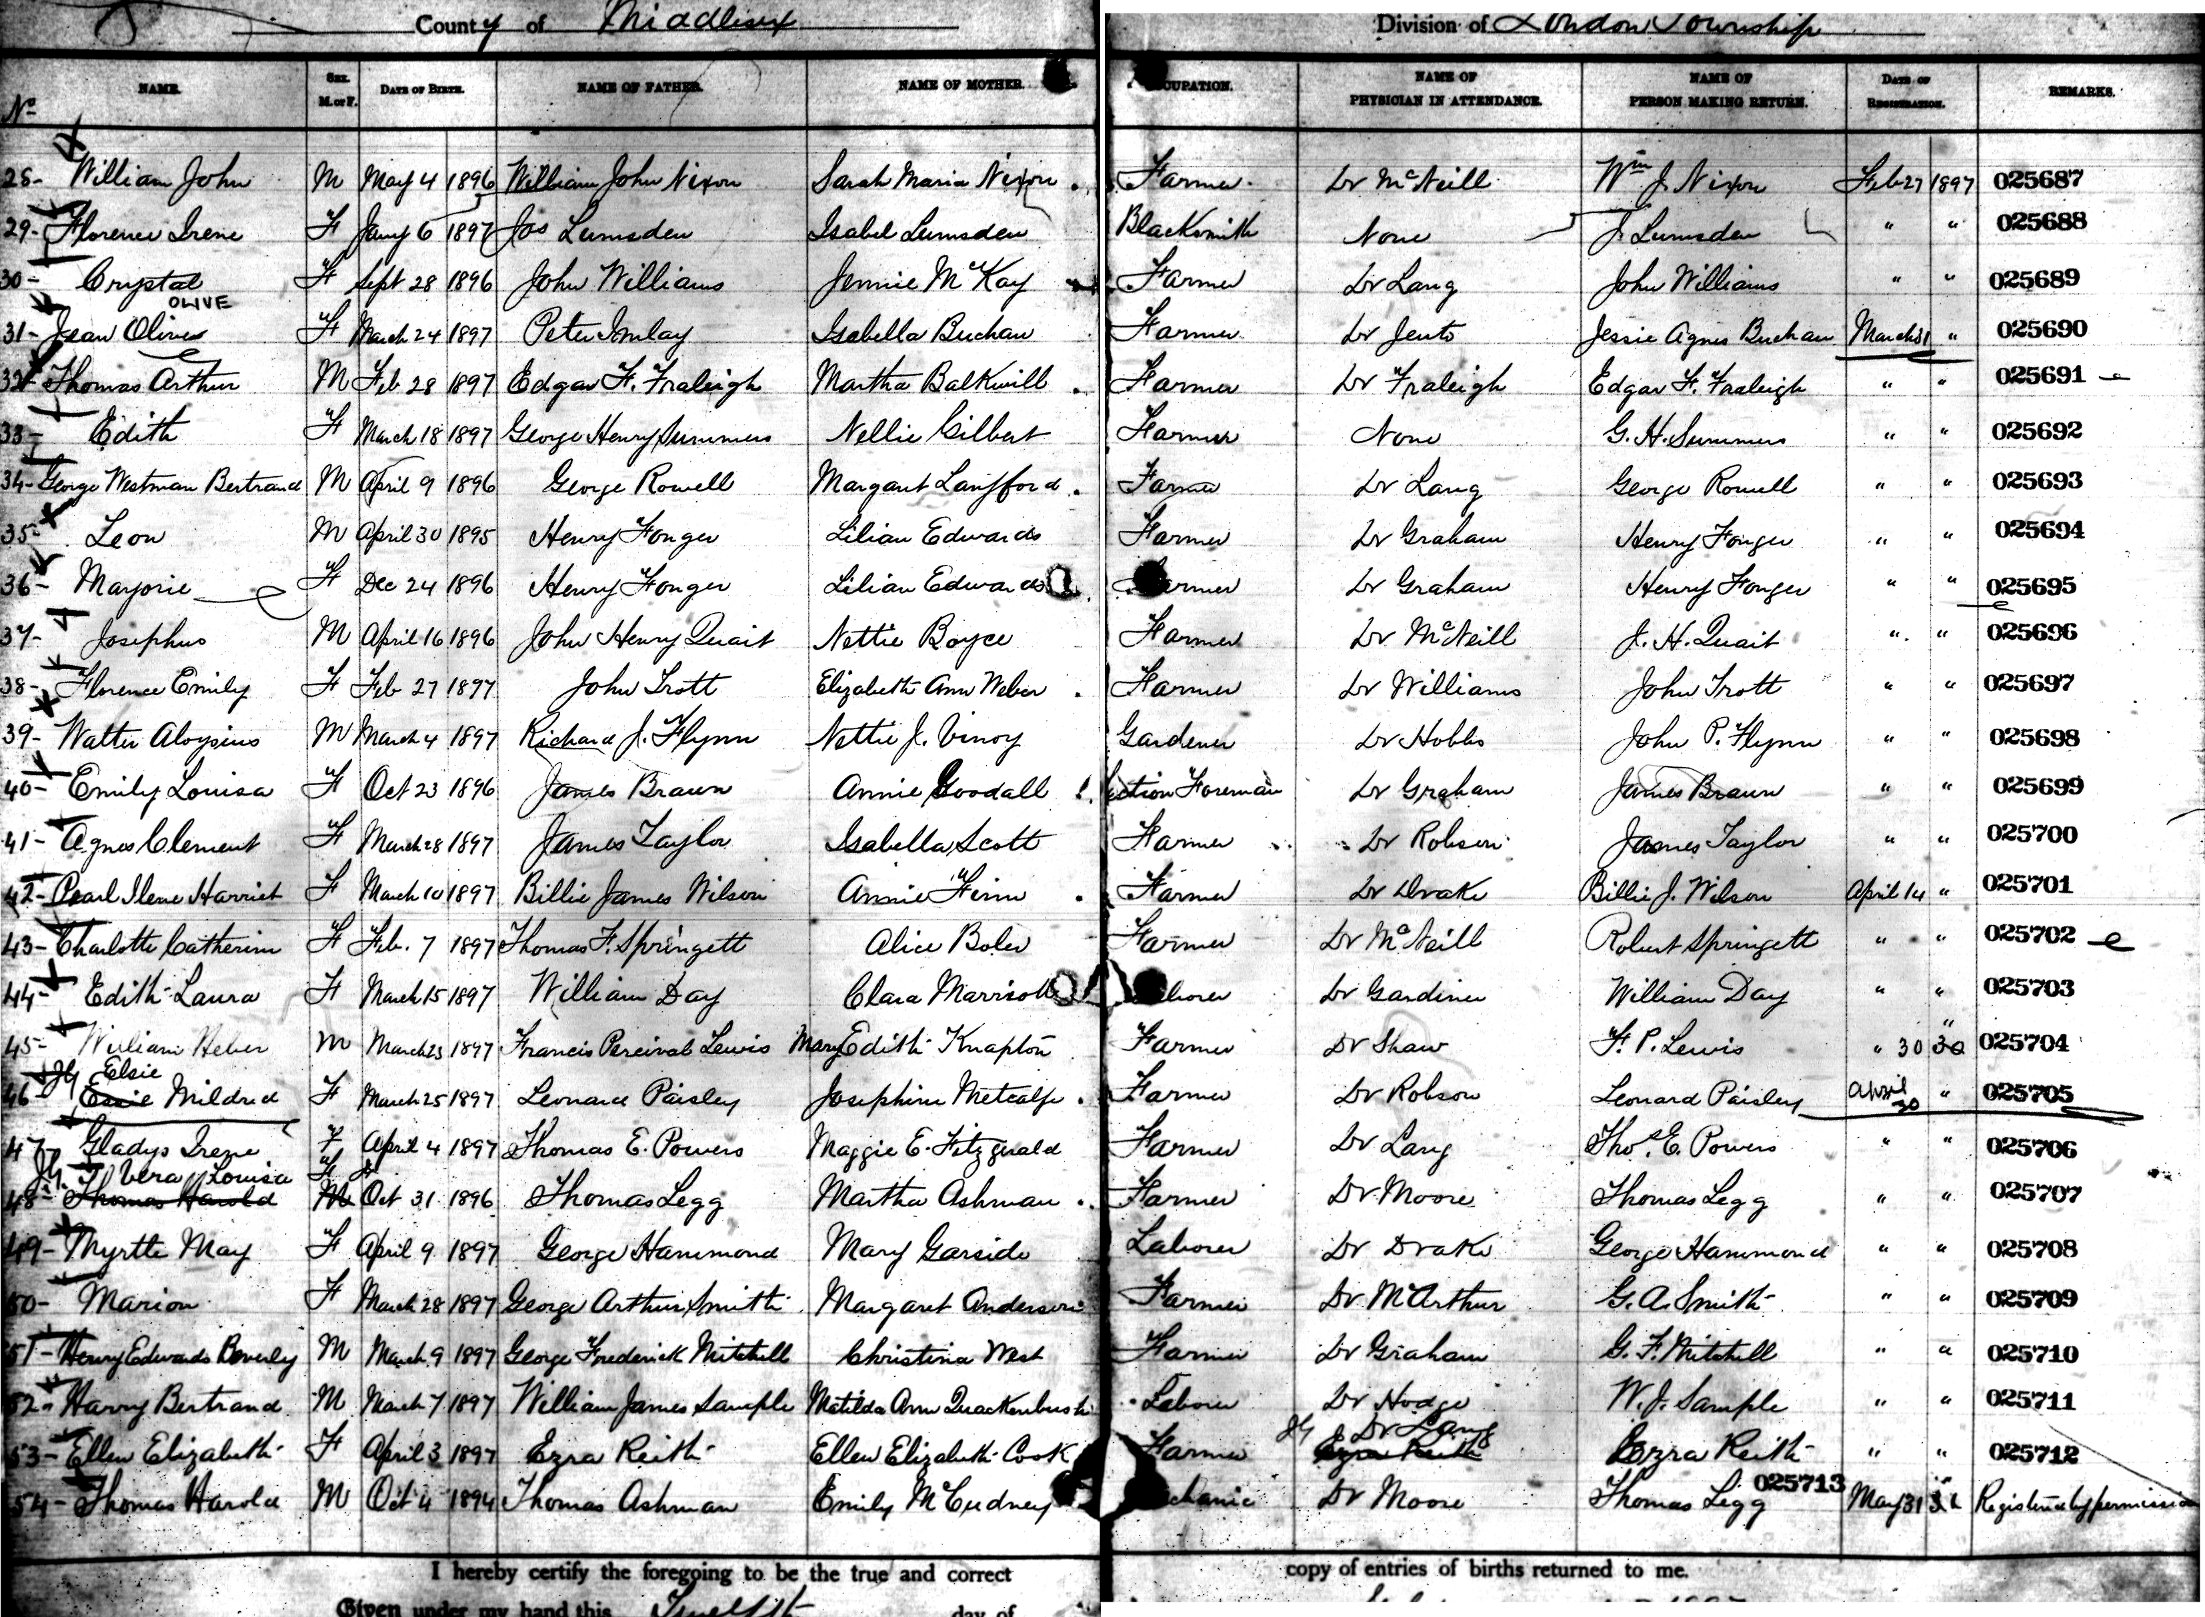 County of Middlesex Division of London Township
No NAME. SEX. M. or F. DATE OF BIRTH. NAME OF FATHER. NAME OF MOTHER. OCCUPATION. NAME OF PHYSICIAN IN ATTENDANCE. NAME OF PERSON MAKING RETURN. DATE OF REGISTRATION. REMARKS.
28- William John M May 4 1896 William John Nixon Sarah Maria Nixon Farmer Dr McNeill Wm J. Nixon Feb 27 1897 025687
29- Florence Irene F Jany 6 1897 Jos Lumsden Isabel Lumsden Blacksmith None J. Lumsden " " 025688
30- Crystal F Sept 28 1896 John Williams Jennie McKay Farmer Dr Lang John Williams " " 025689
OLIVE
31- Jean Olives F March 24 1897 Peter Imlay Isabella Buchan Farmer Dr Jento Jessie Agnes Buchan March 31 " 025690
32- Thomas Arthur M Feb 28 1897 Edgar F. Fraleigh Martha Balkwill Farmer Dr Fraleigh Edgar F. Fraleigh " " 025691
33- Edith F March 18 1897 George Henry Summers Nellie Gilbert Farmer None G. H. Summers " " 025692
34- George Westman Bertrand M April 9 1896 George Rowell Margaret Langford Farmer Dr Lang George Rowell " " 025693
35- Leon M April 30 1895 Henry Fonger Lilian Edwards Farmer Dr Graham Henry Fonger " " 025694
36- Marjorie F Dec 24 1896 Henry Fonger Lilian Edwards Farmer Dr Graham Henry Fonger " " 025695
37- Josephus M April 16 1896 John Henry Quait Nettie Boyce Farmer Dr McNeill J. H. Quait " " 025696
38- Florence Emily F Feb 27 1897 John Trott Elizabeth Ann Weber Farmer Dr Williams John Trott " " 025697
39- Walter Aloysius M March 4 1897 Richard J. Flynn Nettie J. Vinoy Gardener Dr Hobbs John P. Flynn " " 025698
40- Emily Louisa F Oct 23 1896 James Braun Annie Goodall Section Foreman Dr Graham James Braun " " 025699
41- Agnes Clement F March 28 1897 James Taylor Isabella Scott Farmer Dr Robson James Taylor " " 025700
42- Pearl Ilene Harriet F March 10 1897 Billie James Wilson Annie Finn Farmer Dr Drake Billie J. Wilson April 14 " 025701
43- Charlotte Catherine F Feb. 7 1897 Thomas F. Springett Alice Boler Farmer Dr McNeill Robert Springett " " 025702
44- Edith Laura F March 15 1897 William Day Clara Marrisott Laborer Dr Gardiner William Day " " 025703
45- William Heber M March 23 1897 Francis Percival Lewis Mary Edith Knapton Farmer Dr Shaw F. P. Lewis " 30 30 " 025704
JG Elsie
46- Essie Mildred F March 25 1897 Leonard Paisley Josephine Metcalfe Farmer Dr Robson Leonard Paisley April 30 " 025705
47- Gladys Irene F April 4 1897 Thomas E. Powers Maggie E. Fitzgerald Farmer Dr Lang Thos. E. Powers " " 025706
JG. Vera Louisa F
48- Thomas Harold M Oct 31 1896 Thomas Legg Martha Ashman Farmer Dr Moore Thomas Legg " " 025707
49- Myrtle May F April 9 1897 George Hammond Mary Garside Laborer Dr Drake George Hammond " " 025708
50- Marion F March 28 1897 George Arthur Smith Margaret Anderson Farmer Dr McArthur G. A. Smith " " 025709
51- Henry Edwards Beverly M March 9 1897 George Frederick Mitchell Christina West Farmer Dr Graham G. F. Mitchell " " 025710
52- Harry Bertrand M March 7 1897 William James Sample Matilda Ann Quackenbush Laborer Dr Hodge W. J. Sample " " 025711
JG Dr Lang
53- Ellen Elizabeth F April 3 1897 Ezra Reith Ellen Elizabeth Cook Farmer Ezra Reith Ezra Reith " " 025712
54- Thomas Harold M Oct 4 1894 Thomas Ashman Emily McCudney Mechanic Dr Moore Thomas Legg 025713 May 31 Registered by permission
I hereby certify the foregoing to be the true and correct copy of entries of births returned to me.
Given under my hand this Twelfth day of